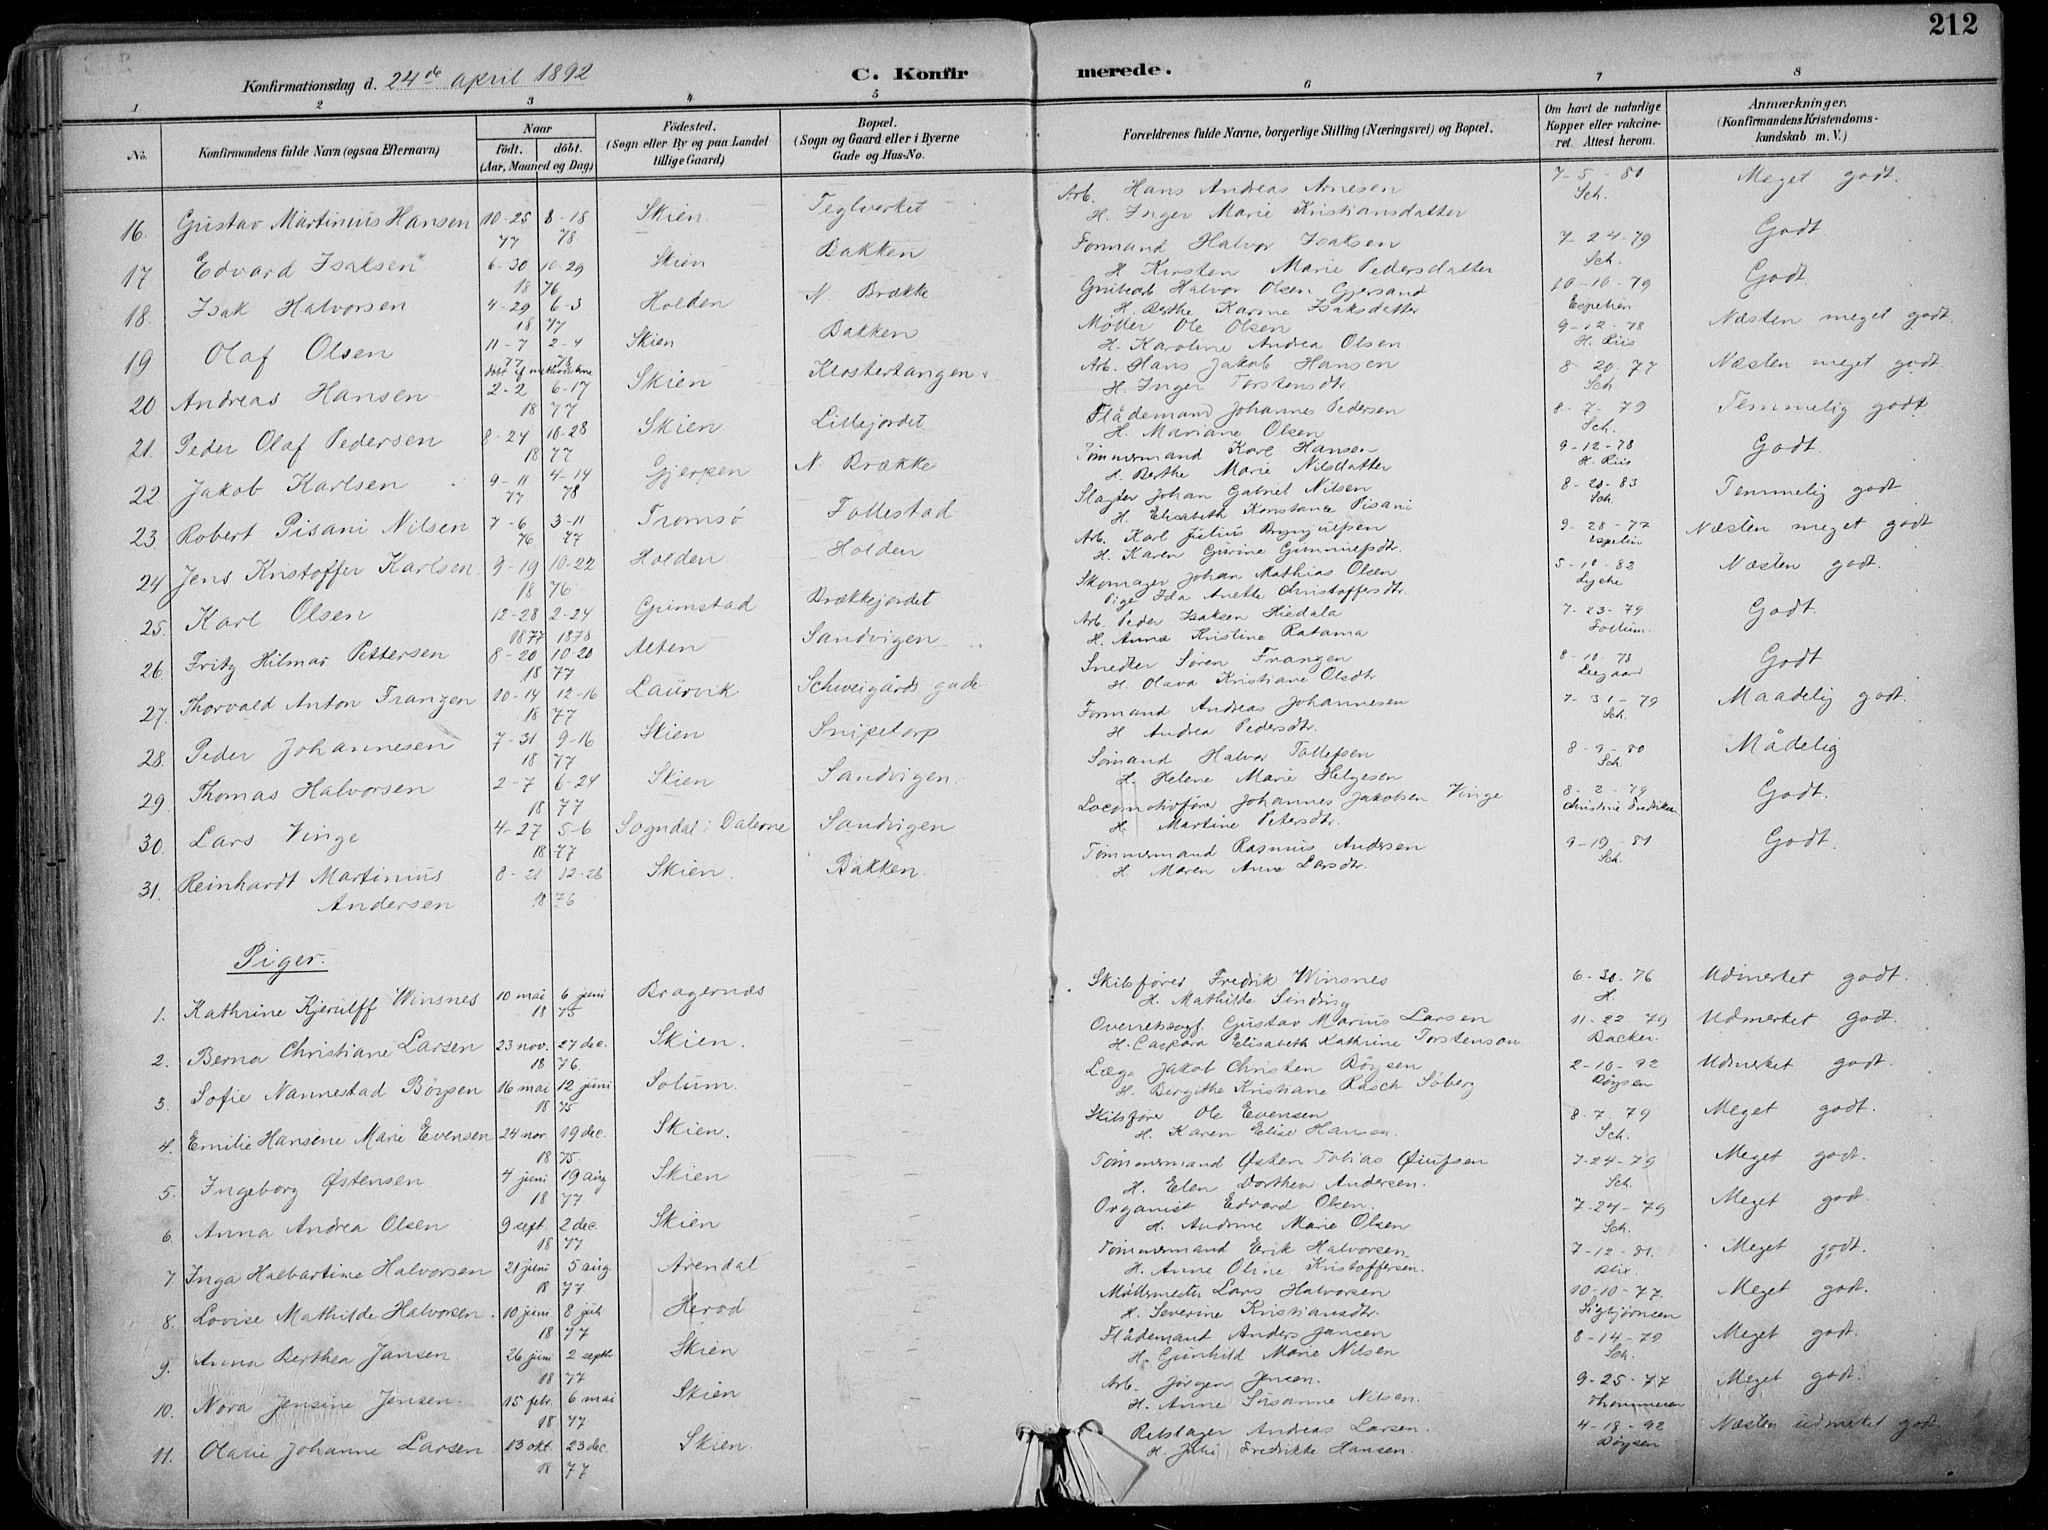 212
Konfirmationsdag d. 24de april 1892
C. Konfirmerede.
1 2 3 4 5 6 7 8
No. Konfirmandens fulde Navn (ogsaa Efternavn) Naar Födt. döbt. (Aar, Maaned og Dag) Födested. (Sogn eller By og paa Landet tillige Gaard) Bopæl. (Sogn og Gaard eller i Byerne Gade og Hus-No. Forældrenes fulde Navne, borgerlige Stilling (Næringsvei) og Bopæl. Om havt de naturlige Kopper eller vakcineret. Attest herom. Anmærkninger. (Konfirmandens Kristendomskundskab m. V.)
16. Gustav Martinius Hansen 10-25 77 8-18 78 Skien. Teglverket Arb. Hans Andreas Arnesen H. Inger Marie Kristiansdatter 7-5-80 Sch. Meget godt.
17 Edvard Isaksen 6-30 10-29 18 76 Skien Bakken Formand Halvor Isaksen H. Kirsten Marie Pedersdatter 7-24-79 Sch. Godt
18. Isak Halvorsen 4-29 6-3 18 77 Holden N Brække Grubearb Halvor Olsen Gjersand H. Berthe Karine Isaksdatter 10-10-79 Espelien Godt
19 Olaf Olsen 11-7 77 2-4 78 Skien Bakken Møller Ole Olsen H. Karoline Andrea Olsen 9-12-78 H. Riis Næsten meget godt.
20 Andreas Hansen 2-2 6-17 18 77 Skien Klostertangen Arb. Hans Jakob Hansen H. Inger Torstensdtr. 8-20-77 Sch Næsten meget godt
21. Peder Olaf Pedersen 8-24 10-28 18 77 Skien Lillejordet Flådemand Johannes Pedersen H. Mariane Olsen 8-7-79 Sch. Temmelig godt
22 Jakob Karlsen 9-11 77 4-14 78 Gjerpen N Brække Tømmermand Karl Hansen H. Berthe Marie Nilsdatter 9-12-78 H. Riis Godt
23. Robert Pisani Nilsen 7-6 76 3-11 77 Tromsø Follestad Slagter Johan Gabriel Nilsen H. Elisabeth Konstance Pisani 8-20-83 Sch. Temmelig godt
24 Jens Kristoffer Karlsen 9-19 10-22 18 76 Holden Holden Arb. Karl Julius Brynjulfsen H. Karen Gurine Gunnulfsdtr. 9-28-77 Espelin Næsten meget godt
25. Karl Olsen 12-28 1877 2-24 1878 Grimstad Brækkejordet Skomager Johan Mathias Olsen Pige Ida Anette Christoffersdtr. 5-10-82 Lyche Næsten godt.
26. Fritz Hilmar Pettersen 8-20 10-20 18 77 Alten Sandvigen Arb. Peder Isaksen Hiedala H. Anna Kristine Ratama 7-23-79 Follum. Godt
27. Thorvald Anton Frangen 10-14 12-16 18 77 Laurvik Schweigårds gade Snedker Søren Frangen H. Olava Kristiane Olsdtr. 8-10-78 Godt
28. Peder Johannesen 7-31 9-16 18 77 Skien Snipetorp Formand Andreas Johannesen H Andrea Pedersdtr. 7-31-79 Sch. Maadelig godt
29. Thomas Halvorsen 2-7 6-24 18 77 Skien Sandvigen. Sømand Halvor Tollefsen H. Helene Marie Helgesen 8-9-80 Sch. Mådelig
30. Lars Vinge 4-27 5-6 18 77 Sogndal i Dalerne Sandvigen Locomotivfører Johannes Jakobsen Vinge H. Martine Petersdtr. 8-2-79 Christine Fredriksen Godt.
31. Reinhardt Martinius Andersen 8-21 12-26 18 76 Skien. Bakken. Tømmermand Rasmus Andersen H Maren Anne Larsdtr. 9-19-81 Sch. Godt.
Piger.
1. Kathrine Kjerulff Winsnes 10 mai 6 juni 18 75 Bragernæs Skibsfører Fredrik Winsnes H. Mathilde Sinding 6-30-76 H. Udmerket godt.
2. Berna Christiane Larsen 23 nov. 27 dec. 18 76 Skien. Gustav Marius Larsen H. Caspara Elisabeth Kathrine Torstenson 11-22-79 Backer. Udmerket godt.
3. Sofie Nannestad Børsen 16 mai 12 juni 18 75 Solum. Læge Jakob Christen Børsen H. Birgithe Kristiane Rasch Søberg 2-10-92 Børsen Udmerket godt.
4. Emilie Hansine Marie Evensen 24 nov. 19 dec. 18 75. Skien. Skibsfører Ole Evensen H. Karen Elise Hansen. 8-7-79 Sch. Meget godt.
5. Ingeborg Østensen 4 juni 19 aug 18 77 Skien Tømmermand Østen Tobias H. Elen Dorthea Andersen. 7-24-79 Sch. Meget godt.
6. Anna Andrea Olsen 9 sept. 2 dec. 18 77 Skien Organist Edvard Olsen. H. Andrine Marie Olsen 7-24-79 Sch. Meget godt.
7 Inga Halbartine Halvorsen 21 juni 5 aug. 18 77 Arendal Tømmermand Erik Halvorsen. H. Anne Oline Kristoffersen. 7-12-81. Blix. Meget godt.
8. Lovise Mathilde Halvorsen. 10 juni 8 juli 18 77 Herød Møllemester Lars Halvorsen H. Severine Kristiansdtr. 10-10-77. Sigbjørnsen Meget godt.
9. Anna Berthea Jansen 26 juni 2 septbr 18 77 Skien Flådemand Anders Jansen H. Gunhild Marie Nilsen 8-14-79 Sch. Meget godt.
10. Nora Jensine Jensen. 15 febr. 6 mai 18 77 Skien Arb. Jørgen Jensen. H. Anne Susanne Nilsen. 9-25-77 Thommesen Meget godt.
11. Olavie Johanne Larsen. 13 okt. 23 dec. 18 77 Skien. Rebslager Andreas Larsen. H. Julie Fredrikke Hansen. 4-18-92 Børsen Næsten udmerket godt.